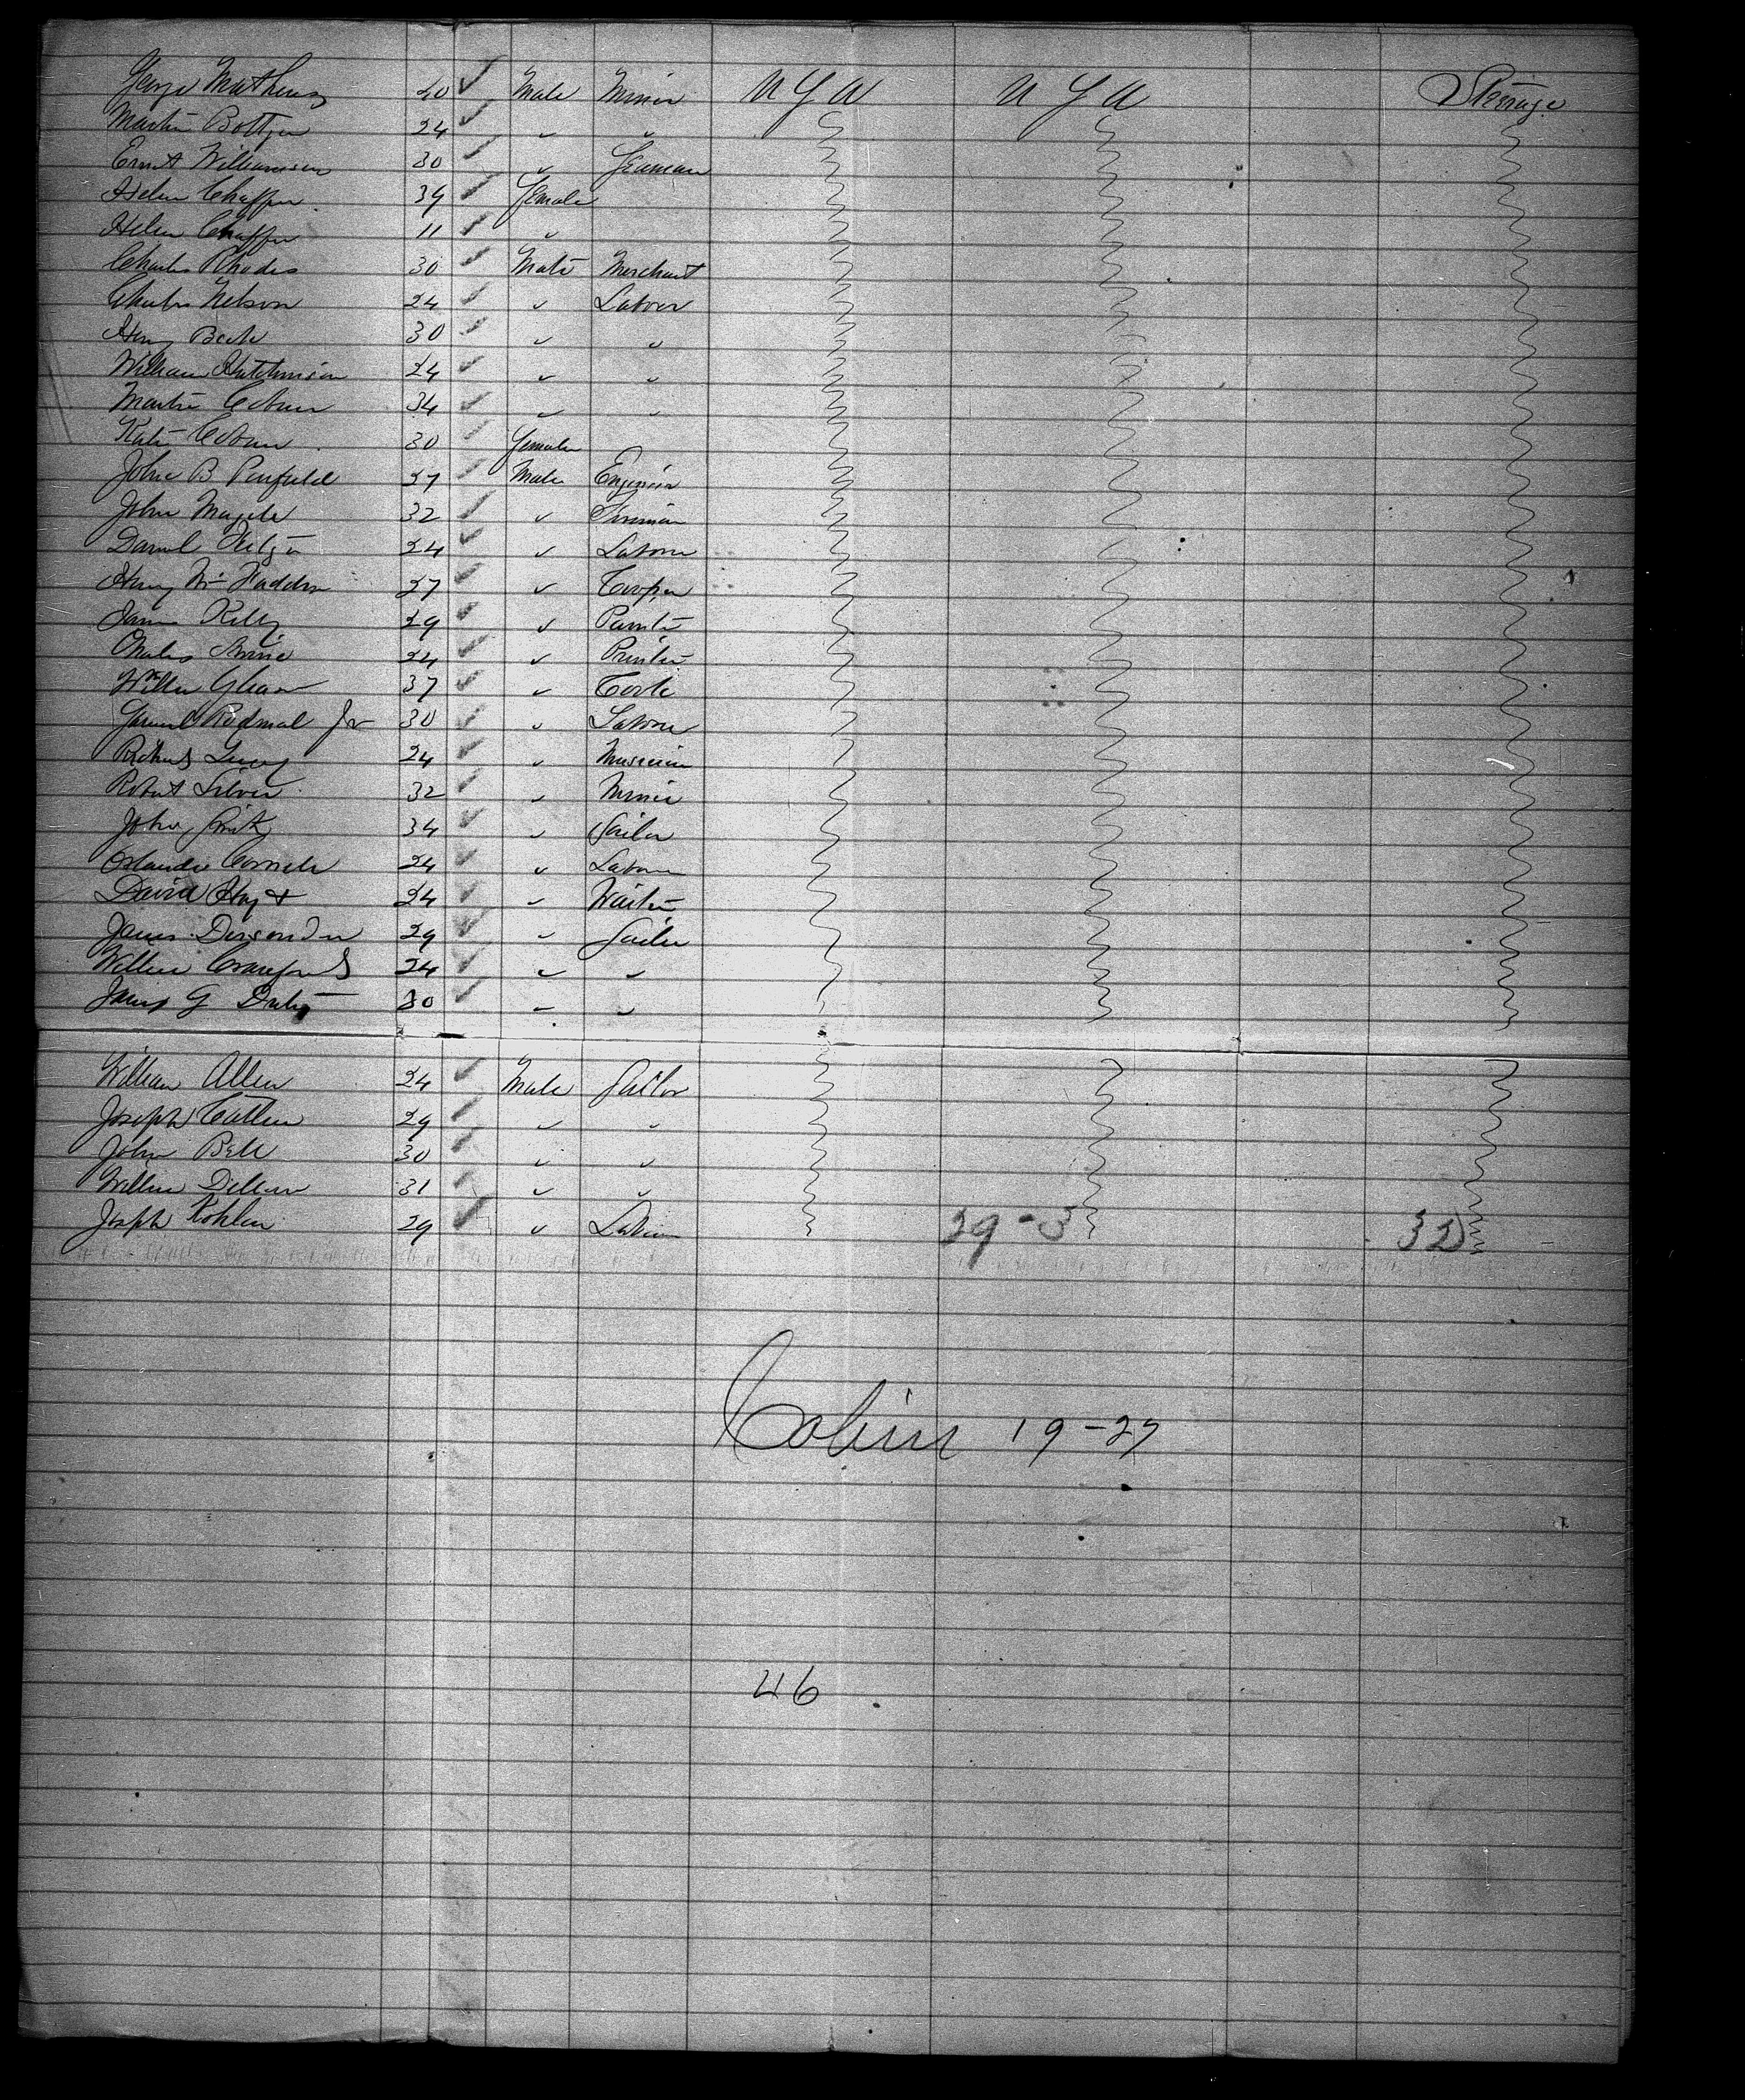 George Mathews 40 ✓ Male Miner U S A U S A Steerage
Martin Bottger 24 ✓ " "
Ernst Williamson 30 ✓ " Seaman
Helen Chaffer 34 ✓ Female
Helen Chaffer 11 ✓ "
Charles Rhodes 30 ✓ Male Merchant
Charles Nelson 24 ✓ " Laborer
Henry Beck 30 ✓ " "
William Hutchinson 24 ✓ " "
Martin 34 ✓ " "
Kate 30 ✓ Female
John B Penfield 27 ✓ Male Engineer
John Magee 32 ✓ " Fireman
Daniel 24 ✓ " Laborer
Henry McFadden 27 ✓ " Cooper
James Kelly 29 ✓ " Painter
Charles 24 ✓ " Printer
37 ✓ " Cook
Samuel Rodmal Jr 30 ✓ " Laborer
Richard 24 ✓ " Musician
Robert Silver 32 ✓ " Miner
John 34 ✓ " Sailor
Orlando Cornele 24 ✓ " Laborer
David Hoyt 24 ✓ " Waiter
James 29 ✓ " Sailor
William Crawford 24 ✓ " "
James G 30 ✓ " "
William Allen 24 ✓ Male Sailor
Joseph Cullen 29 ✓ " "
John Bell 30 ✓ " "
William Dillon 31 ✓ " "
Joseph Kohler 29 ✓ " Laborer 29-3 32
Cabin 19-27
46